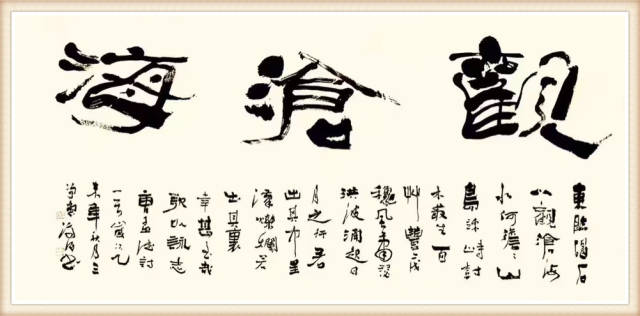 觀滄海
東臨碣石
以觀滄海
水何澹澹山
島竦峙樹
木叢生百
艸豐茂
秋風蕭瑟
洪波涌起日
月之行若
出其中星
漢燦爛若
出其裏
幸甚至哉
歌以詠志
曹孟德詩
一首歲次乙
未年秋月三